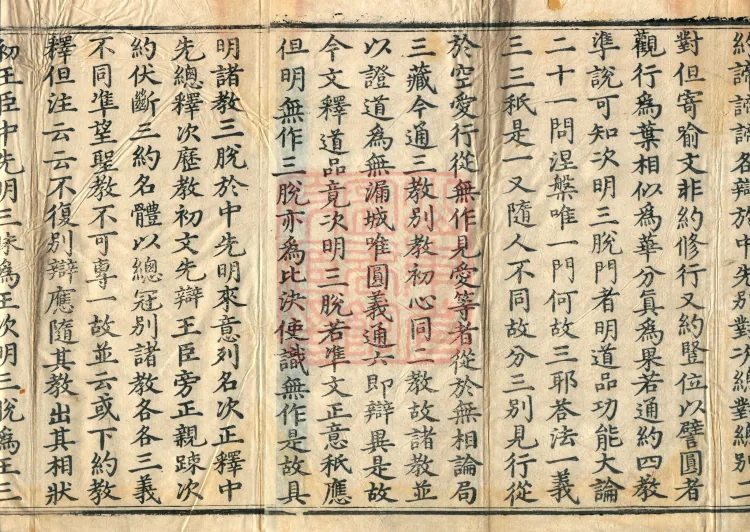 於中先別對次總對總別二
對但寄喻文非約修行又約豎位以譬圓者
觀行爲葉相似爲華分眞爲果若通約四教
準說可知次明三脫門者明道品功能大論
二十一問涅槃唯一門何故三耶答法一義
三三秖是一又隨人不同故分三別見行從
於空愛行從無作見愛等者從於無相論局
三藏今通三教別教初心同二教故諸教並
以證道爲無漏城唯圓義通六即辯異是故
今文釋道品竟次明三脫若準文正意秖應
但明無作三脫亦爲比決使識無作是故具
明諸教三脫於中先明來意列名次正釋中
先總釋次歷教初文先辯王臣旁正親踈次
約伏斷三約名體以總冠別諸教各各三義
不同準望聖教不可專一故並云或下約教
釋但注云云不復別辯應隨其教出其相狀
初王臣中先明三爲王次明三脫爲王三